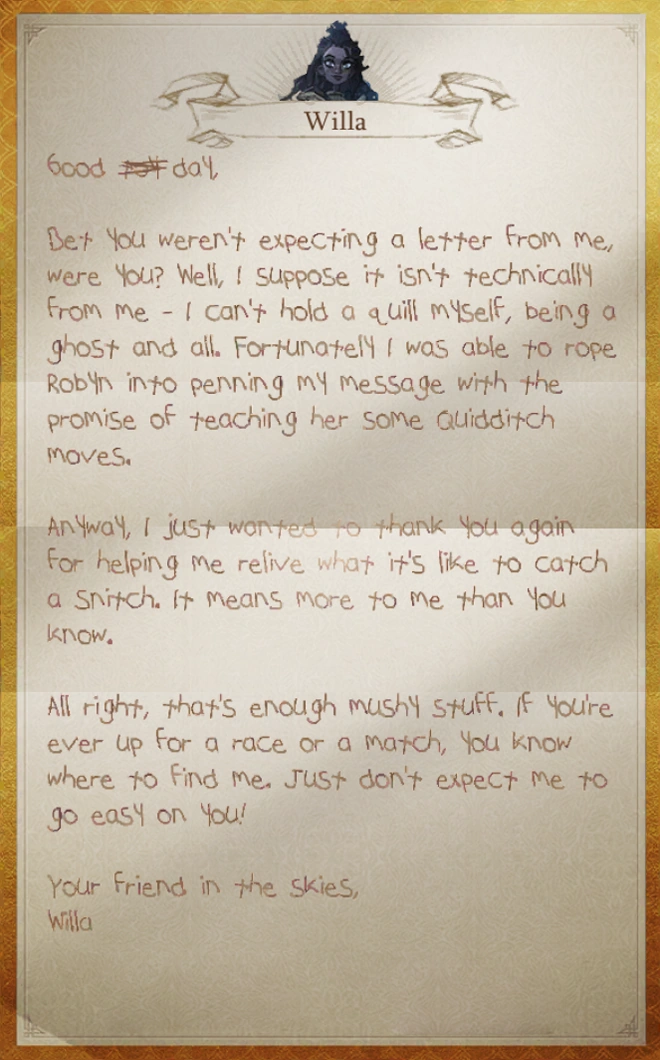 Willa
Good day,
Bet you weren't expecting a letter from me,
were you? Well, I suppose it isn't technically
from me - I can't hold a quill myself, being a
ghost and all. Fortunately I was able to rope
Robyn into penning my message with the
promise of teaching her some Quidditch
moves.
Anyway, I just wanted to thank you again
for helping me relive what it's like to catch
a Snitch. It means more to me than you
know.
All right, that's enough mushy stuff. If you're
ever up for a race or a match, you know
where to find me. Just don't expect me to
go easy on you!
Your friend in the skies,
Willa